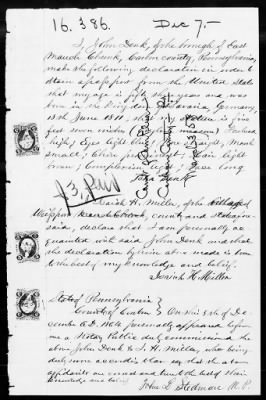 16.386. Dec 7.-
I, John Denk, of the borough of East
Mauch Chunk, Carbon county, Pennsylvania,
make the following declaration in order to
obtain a passport from the United States
that my age is fifty three years and was
born in the Kingdom of Bavaria, Germany,
13th June 1811, that my stature is five
feet seven inches
high; Eyes light blue; Nose straight; Mouth
small; Chin; Hair light
brown; Complexion; Face long
John Denk
I, Josiah H. Miller, of the village of
Weissport, county and state afore-
said, declare that I am personally ac-
quainted with said John Denk and that
the declaration by him above made is true
to the best of my knowledge and belief.
Josiah H. Miller
State of Pennsylvania }
County of Carbon } On this 5th of De-
cember A.D. 1864 personally appeared before
me a Notary Public duly commissioned the
above John Denk & J. H. Miller, who being
duly sworn according to law say that the above
affidavits are correct and true to the best of their
knowledge and belief.
John L. Stedman N.P.